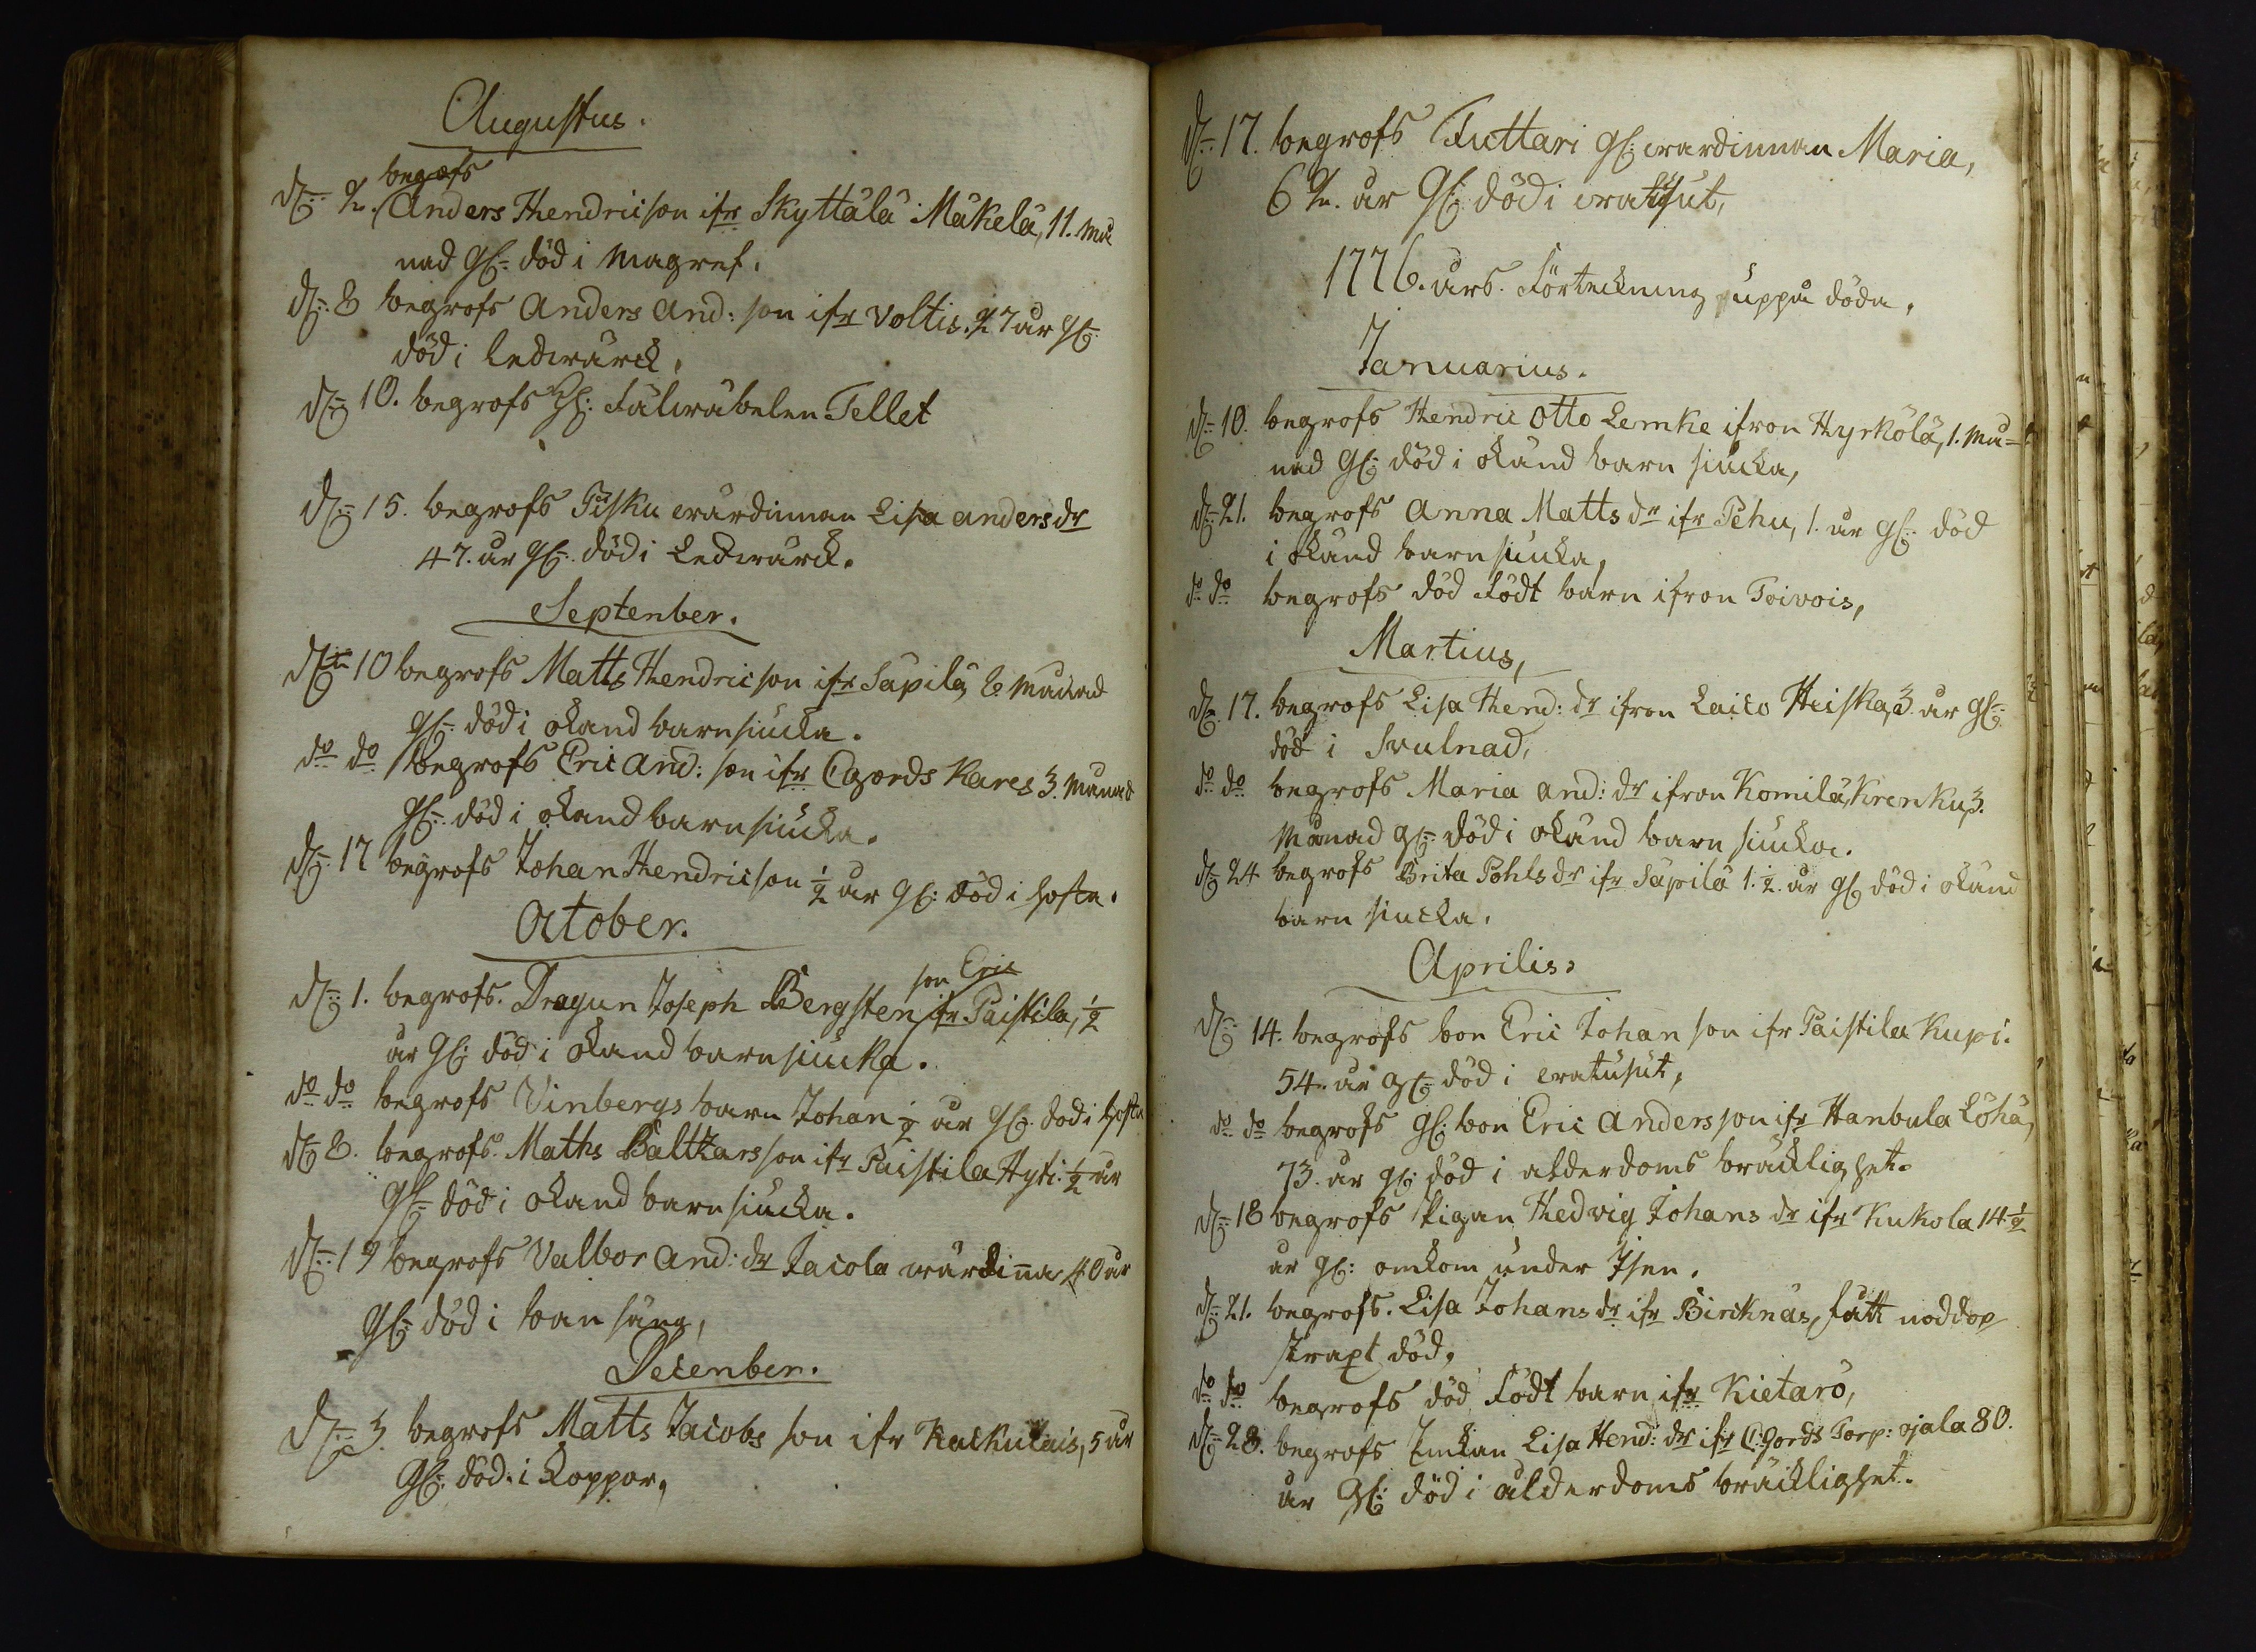 Augustus.
begrofs
d: 2. Anders Hendricson ifr Skyttälä Mäkelä, 11. må
nad gl: död i magref.
d: 8 begrofs Anders And: son ifr Voltis. 27 år gl:
död i Ledwärck.
d: 10. begrofs H: Fältwäbelen Tellet
d: 15. begrofs Pisku wärdinnan Lisa anders dr
47. år gl: död i Ledwärck.
Septenber.
d: 10 begrofs Matts Hendricson ifr Säpilä, 6 månad
gl: död i okänd barnsiucka.
do do begrofs Eric And: son ifr Cgords Kares 3. månad
gl: död i okänd barnsiucka.
d: 17 begrofs Johan Hendricson ½ år gl: död i hosta.
October.
son Eric
d: 1. begrofs. Dragun Joseph Bergsten ifr Paistila, ½
år gl: död i okänd barnsiucka.
do do begrofs Vinbergs barn Johan ½ år gl: död i hosta
d: 8. begrofs. Maths Baltzarsson ifr Paistila Hyti. ½ år
gl: död i okänd barnsiucka.
d: 19 begrofs Valbor And: dr Jacola wärdinna 40 år
gl: död i barnsäng,
Decenber.
d: 3. begrofs Matts Jacobs son ifr Kackulais, 5 år
gl: död i koppor,
d: 17. begrofs Tuttari gl: wärdinnan Maria,
62. år gl: död i watusut,
1776. års Förteckning uppå döda.
Januarius.
d: 10. begrofs Hendric Otto Lemke ifron Hyrkölä, 1. må-
nad gl: död i okänd barn siucka,
d: 21. begrofs Anna Matts dr ifr Pehu, 1. år gl: död
i okänd barn siucka,
do do begrofs död födt barn ifron Toivois,
Martius,
d: 17. begrofs Lisa Hend: dr ifron Laico Heiska, 3. år gl:
död i Svulnad,
do do begrofs Maria And: dr ifron Komilä, Krenku, 3.
månad gl: död i okänd barn siucka.
d: 24 begrofs Brita Påhls dr ifr Säpilä 1. ½. år gl: död i okänd
barn siucka.
Aprilis.
d: 14. begrofs bon Eric Johan son ifr Paistila Kupi.
54. år gl: död i watusut,
do do begrofs gl: bon Eric Andersson ifr Hanbula Löhä,
73. år gl: död i alderdoms bräcklighet.
d: 18 begrofs Pigan Hedvig Johans dr ifr Kukola 14 ½
år gl: omkom under Isen.
d: 21. begrofs. Lisa Johans dr ifr Bircknäs, fått noddop
strapt död,
do do begrofs död födt barn ifr Kietarö,
d: 28. begrofs Enckan Lisa Hend: dr ifr C:gords Torp: ojala 80.
år gl: död i ålderdoms bräcklighet.